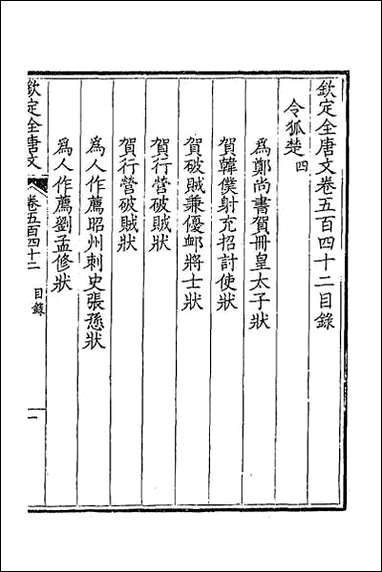 欽定全唐文卷五百四十二目錄
令狐楚四
為鄭尚書賀冊皇太子狀
賀韓僕射充招討使狀
賀破賊兼優邮將士狀
賀行營破賊狀
賀行營破賊狀
為人作薦昭州刺史張愻狀
為人作薦劉孟修狀
欽定全唐文
卷五百四十二
目錄
一